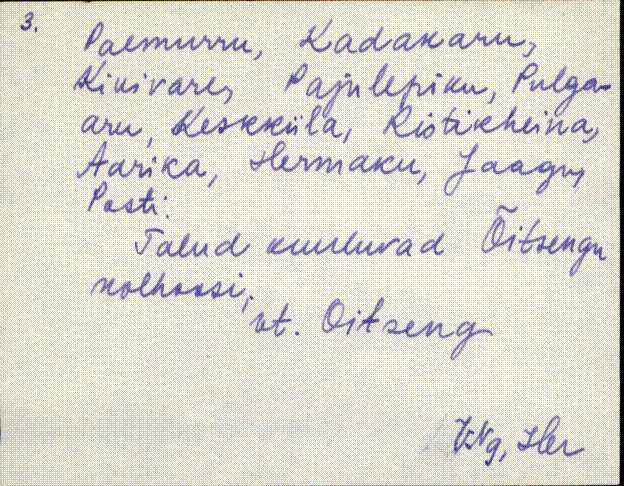 3.
Paemurru, Kadakaru,
Kivivare, Pajulepiku, Pulga-
aru, Keskküla, Ristikheina,
Aarika, Hermaku, Jaagu,
Posti.
Talud kuuluvad Õitsengu
kolhoosi,
vt. Oitseng
VNg, Her